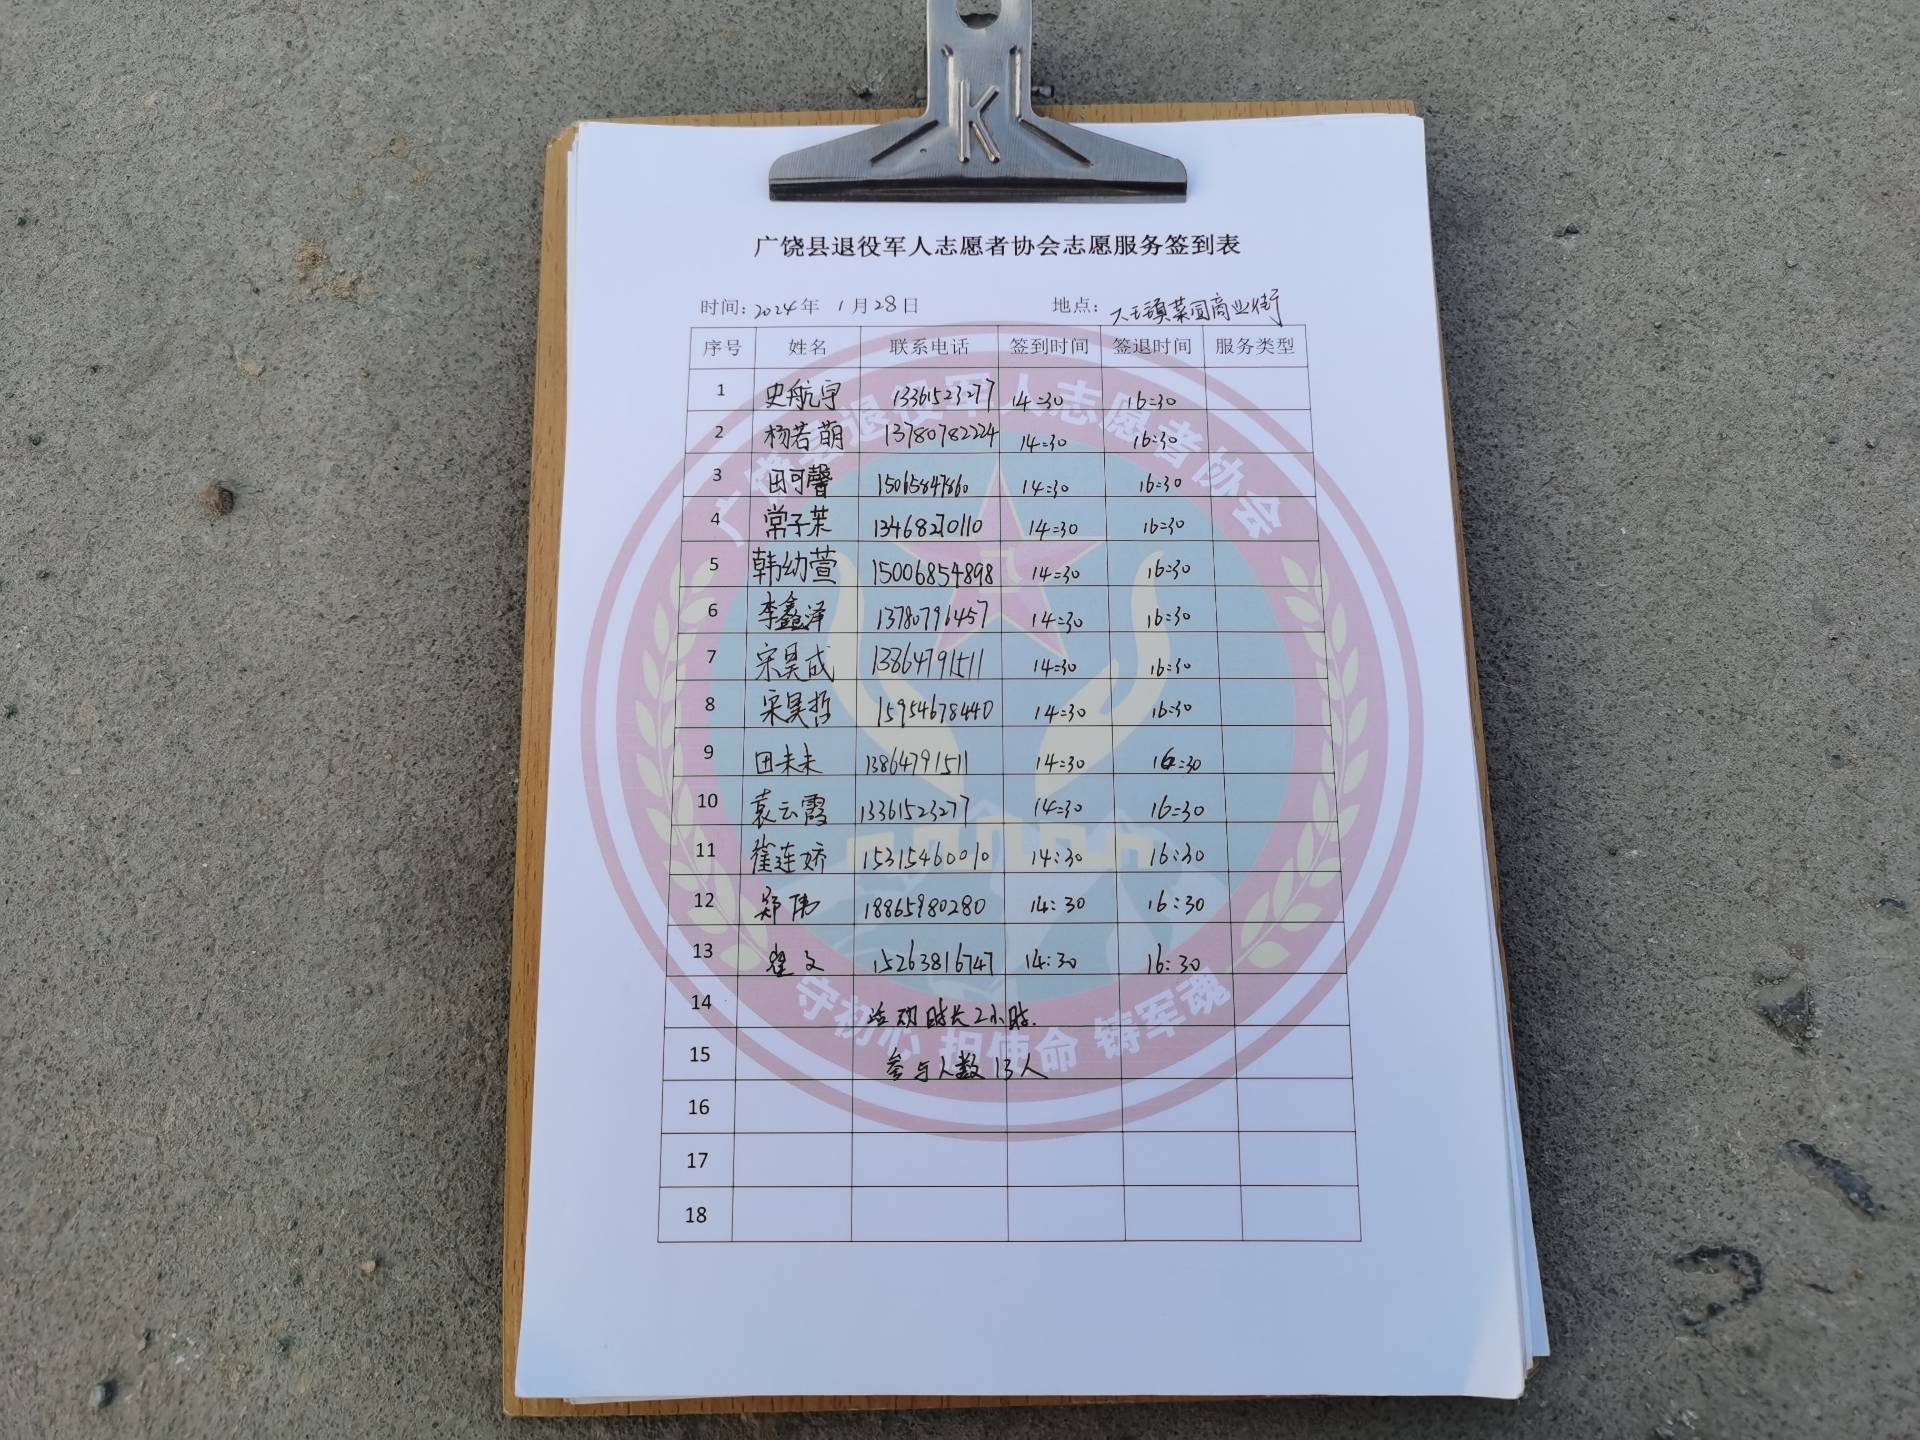 K
广饶县退役军人志愿者协会志愿服务签到表
时间: 2024年 1月28日 地点: 大王镇菜园商业街
序号 姓名 联系电话 签到时间 签退时间 服务类型
1 史航宇 13361523277 14:30 16:30
2 杨若萌 13780782224 14:30 16:30
3 田可馨 15065847860 14:30 16:30
4 常子茉 13468270110 14:30 16:30
5 韩幼萱 15006854898 14:30 16:30
6 李鑫泽 13780796457 14:30 16:30
7 宋昊成 13864791511 14:30 16:30
8 宋昊哲 15954678440 14:30 16:30
9 田未未 13864791511 14:30 16:30
10 袁云霞 13361523277 14:30 16:30
11 崔连娇 15315460010 14:30 16:30
12 郑伟 18865980280 14:30 16:30
13 翟文 15263816747 14:30 16:30
14 活动时长2小时.
15 参与人数13人
16
17
18
广饶县退役军人志愿者协会
八一
守初心 担使命 铸军魂